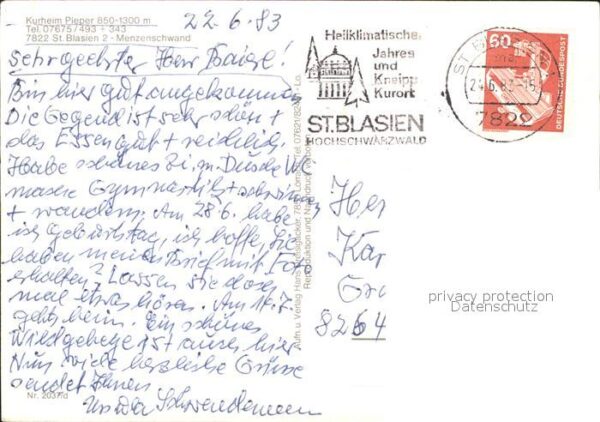 Kurheim Pieper 850-1300 m
Tel. 07675/493 + 343
7822 St. Blasien 2 - Menzenschwand
22.6.83
Sehr geehrter Herr
Bin hier gut angekommen
Die Gegend ist sehr schön +
das Essen gut + reichlich.
Habe schönes Zi. m. Dusche WC
mache Gymnastik + schwimmen
+ wandern. Am 28.6. habe
ich Geburtstag, ich hoffe, Sie
haben meinen Brief mit Foto
erhalten? Lassen Sie doch
mal etwas hören. Am 17.7.
gehts heim. Ein schönes
Wildgehege ist auch hier
Nun viele herzliche Grüsse
sendet Ihnen
Nr. 2037/d
Heilklimatischer
Jahres
und
Kneipp
Kurort
ST. BLASIEN
HOCHSCHWARZWALD
60
DEUTSCHE BUNDESPOST
7822
Her
Kar
Gr
8264
privacy protection
Datenschutz